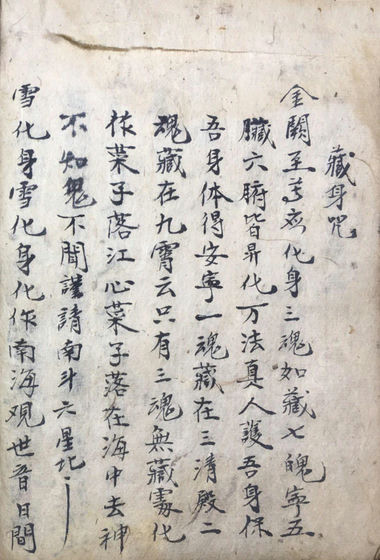 藏身咒
金闕至尊应化身三魂如藏七魄寧五
臟六腑皆昇化万法真人護吾身保
吾身体得安寧一魂藏在三清殿二
魂藏在九霄云只有三魂無藏霧化
作菜子落江心菜子落在海中去神
不知鬼不聞謹請南斗六星北丨
雪化身雪化身化作南海观世音日間